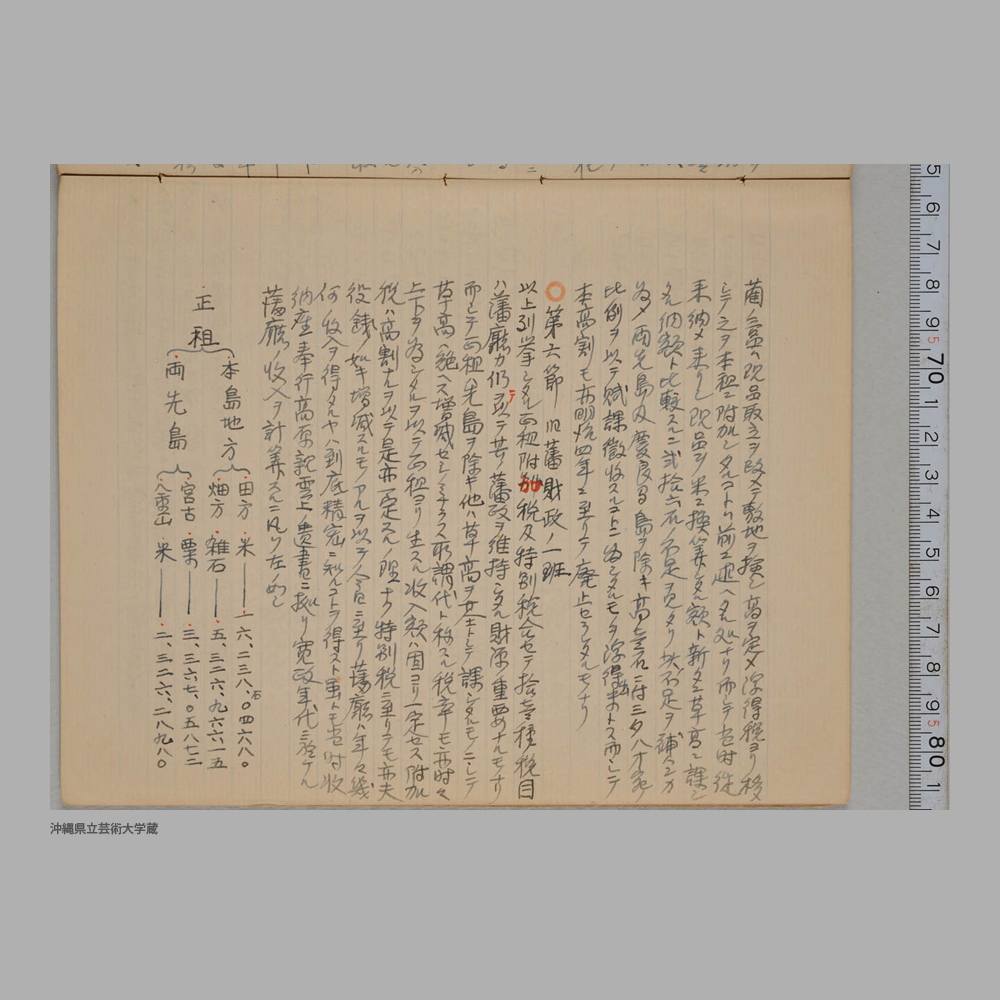 藺ノ品ハ現品取立ヲ改メテ敷地ヲ検シ高ヲ定メ浮得税ヨリ移
シテ之ヲ本租ニ附加シタルコトハ前ニ述ヘタル如クナリ而シテ当時従
来納メ来リシ現品ヲ米ニ換算シタル額ト新タニ草高ニ課シ
タル納額ト比較スルニ弐拾六石ノ不足ヲ見タリ此不足ヲ補ハンカ
為メ両先島及慶良間島ヲ除キ高壱石ニ付三夕八才
比例ヲ以テ賦課徴収スルコトニ為シタルモノヲ浮得トス而シテ
本高割モ亦明治四年ニ至リテ廃止セラレタルモノナリ
○第六節 旧藩財政ノ一班
以上列挙シタル正租附加税及特別税合セテ拾壱種税目
ハ藩庁カ仍ヲ以テ其ノ藩政ヲ維持シタル財源ノ重要ナルモノナリ
而シテ正租ハ先島ヲ除キ他ハ草高ヲ本トシテ課シタルモノニシテ
草高ハ絶ヘス増減セシノミナラス所謂代ト称スル税率モ亦時々
上下ヲ為シタルヲ以テ正租ヨリ生スル収入額ハ固ヨリ一定セス附加
税ハ高割ナルヲ以テ是亦一定スルノ理ナク特別税ニ至リテモ亦夫
役銭ノ如キ増減スルモノアルヲ以テ今日ニ至リ藩庁ハ年々幾
何ノ収入ヲ得タルヤハ到底精密ニ知ルコトヲ得スト雖トモ当時収
納座奉行高原親雲上ノ遺書ニ拠リ寛政年代ニ於ケル
藩庁ノ収入ヲ計算スルニ凡ソ左ノ如シ
正租
本島地方
田方 米――一六、二三八、石〇四六八〇
畑方 雑石――五、三二六、九六六一五
両先島
宮古 粟――三、三六七、〇五八七二
八重山 米――二、三二六、二八九八〇
5 6 7 8 95 70 1 2 3 4 5 6 7 8 95 80 1
沖縄県立芸術大学蔵